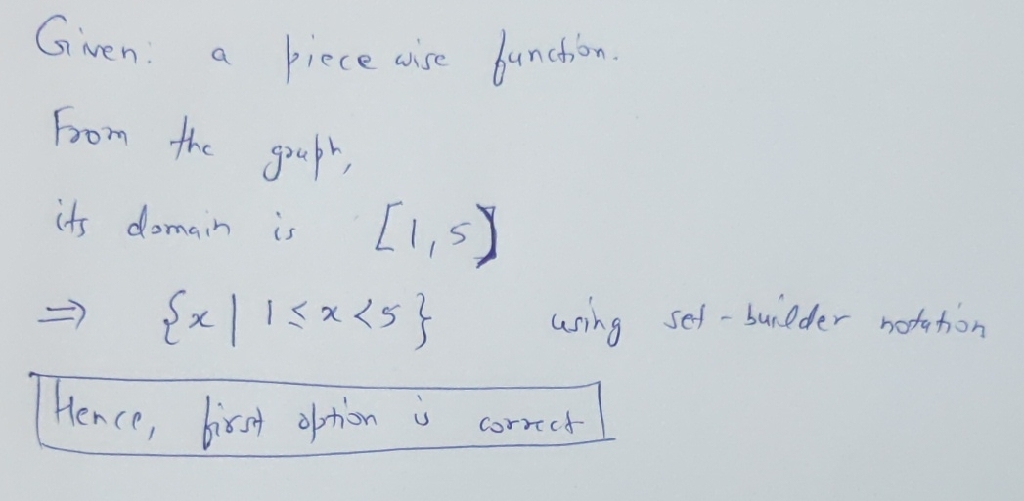 Given: a piece wise function.
From the graph,
its domain is [1,5]
⇒ {x | 1 ≤ x < 5} using set-builder notation
Hence, first option is correct